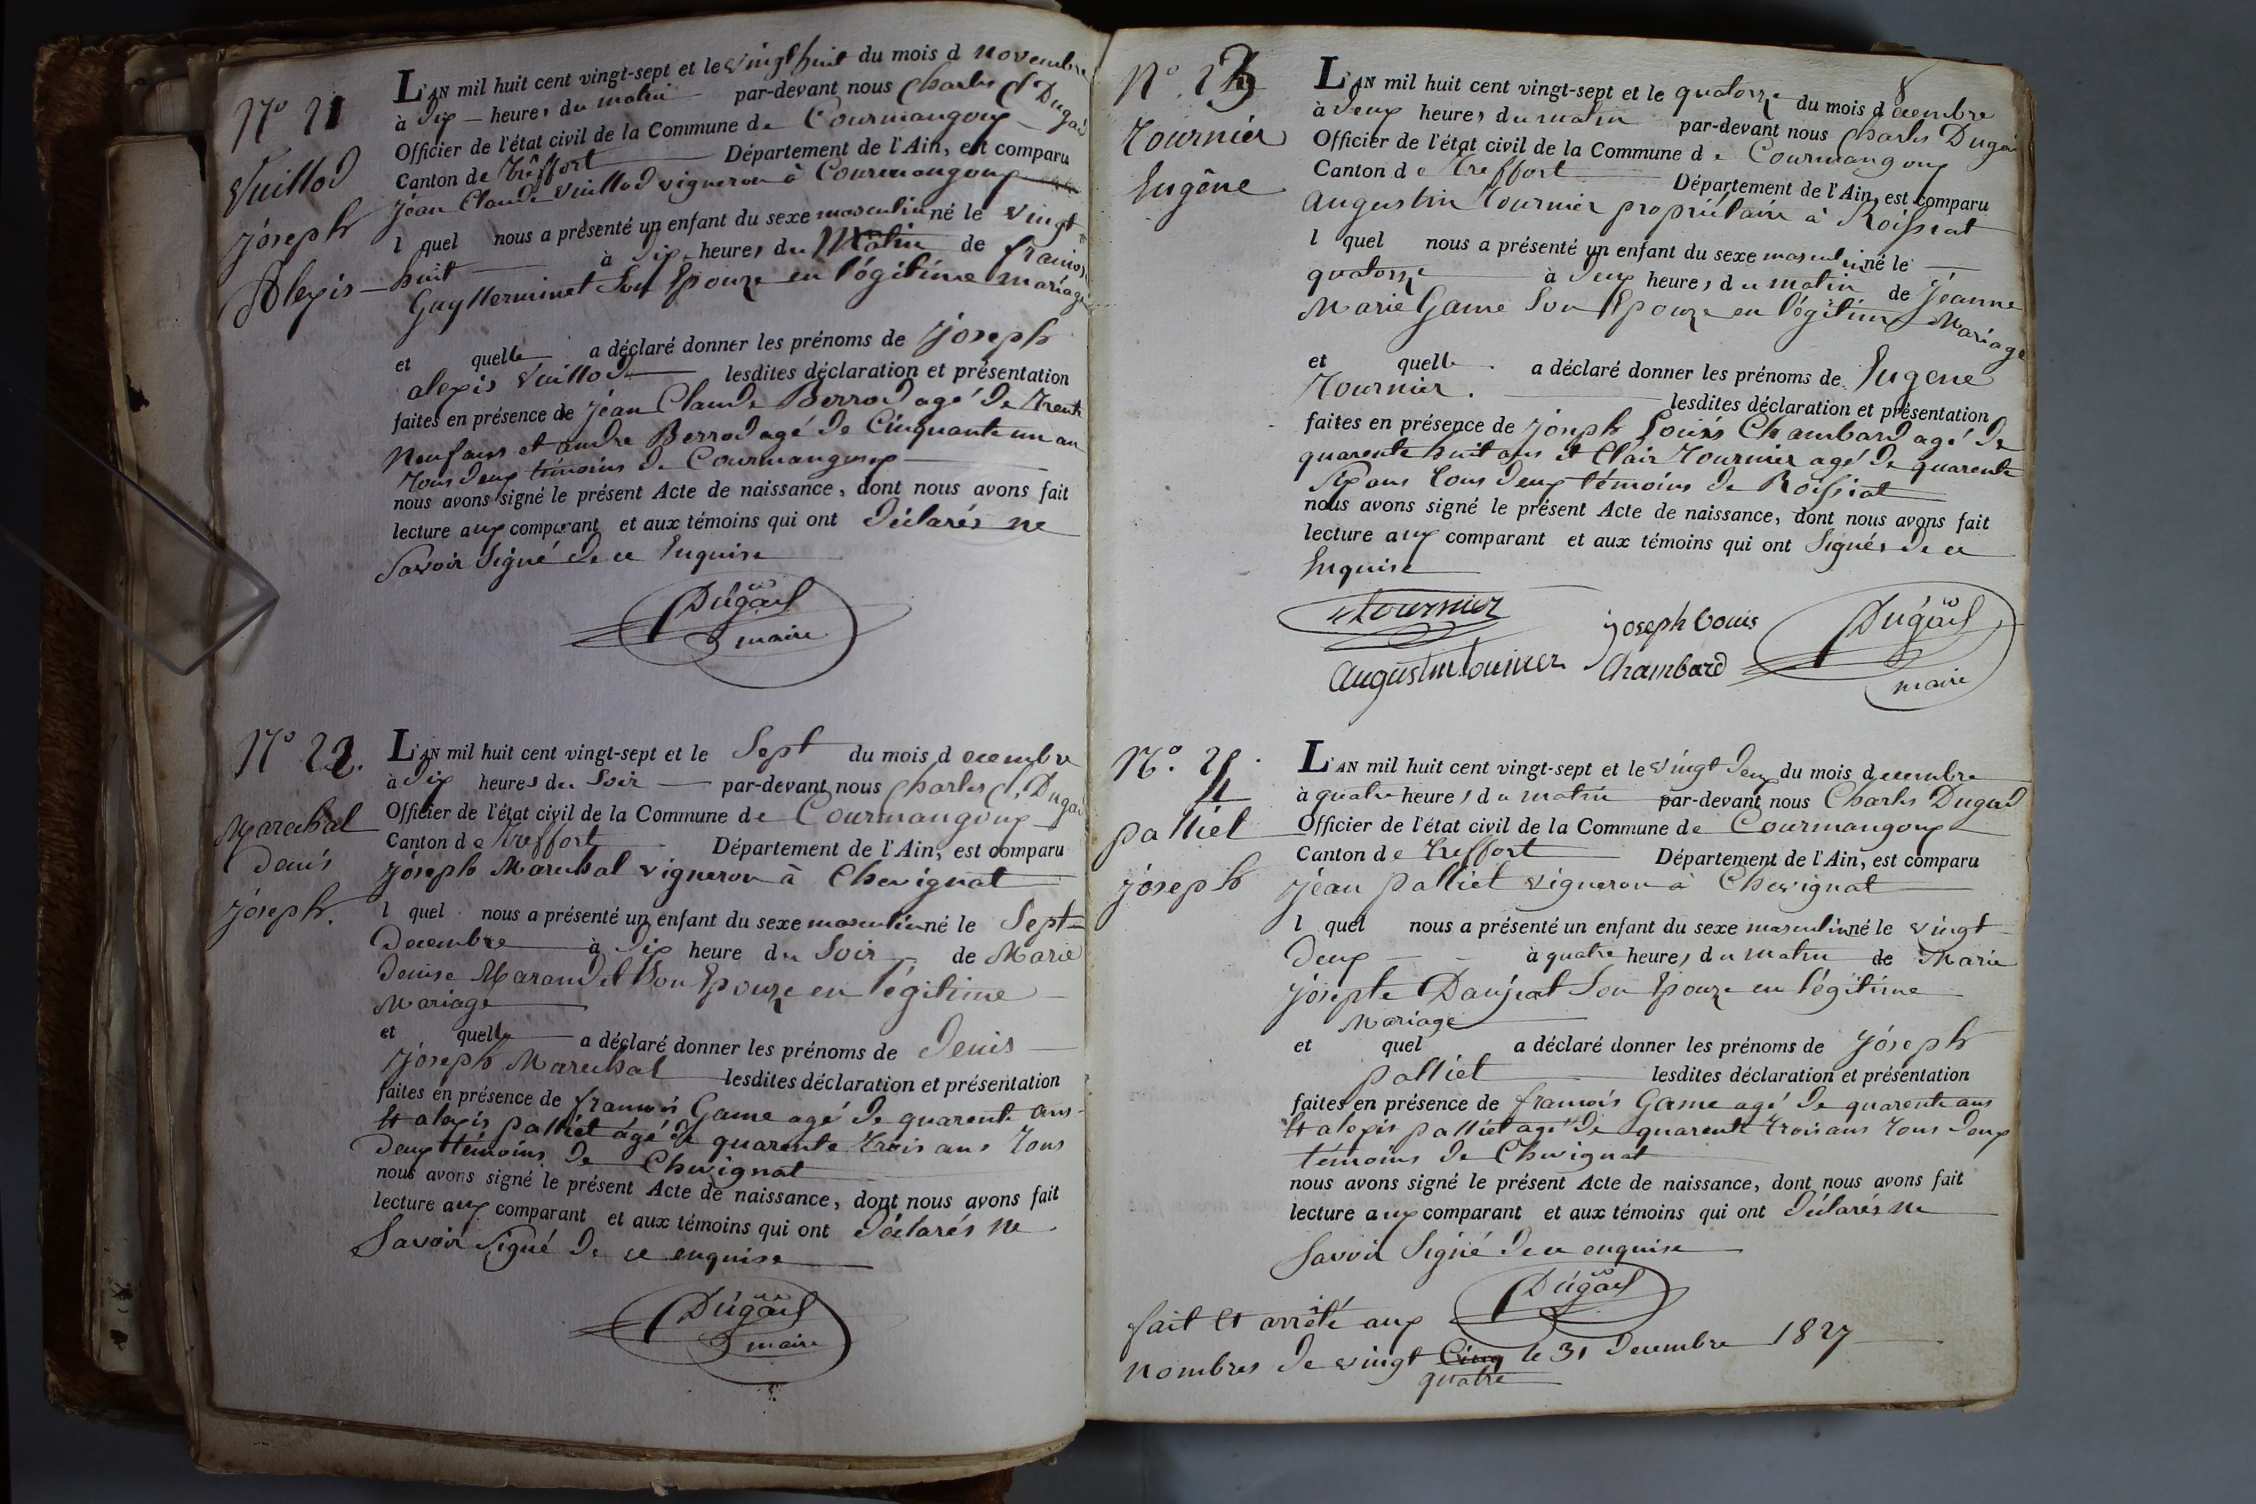 N° 21
Vuillod
Joseph
Alexis
L'AN mil huit cent vingt-sept et le vingt huit du mois d novembre
à dix heures du matin par-devant nous Charles Dugad
Officier de l'état civil de la Commune de Courmangoux
Canton de Treffort Département de l'Ain, est comparu
Jean Claude Vuillod vigneron à Courmangoux
l quel nous a présenté un enfant du sexe masculin né le vingt
huit à dix heures du Matin de
Guy Son Epouze en légitime mariage
et quelle a déclaré donner les prénoms de Joseph
alexis Vuillod lesdites déclaration et présentation
faites en présence de Jean Claude Berrod agé de Trente
Neuf ans et andre Berrod agé de Cinquante un an
Tous deux témoins de Courmangoux
nous avons signé le présent Acte de naissance, dont nous avons fait
lecture aux comparant et aux témoins qui ont déclarés ne
Savoir Signé de ce Enquise
Dugad
maire
N° 22.
Marechal
denis
Joseph.
L'AN mil huit cent vingt-sept et le Sept du mois d ecembre
à dix heures du Soir par-devant nous Charles Dugad
Officier de l'état civil de la Commune de Courmangoux
Canton de Treffort Département de l'Ain, est comparu
Joseph Marechal vigneron à Chevignat
l quel nous a présenté un enfant du sexe masculin né le Sept
Decembre à dix heure du Soir de Marie
denise Marandet Son Epouze en légitime
Mariage
et quelle a déclaré donner les prénoms de Denis
Joseph Marechal lesdites déclaration et présentation
faites en présence de francois Game agé de quarente ans
Et alexis palliet agé de quarente trois ans Tous
deux témoins de Chevignat
nous avons signé le présent Acte de naissance, dont nous avons fait
lecture aux comparant et aux témoins qui ont déclarés ne
Savoir Signé de ce enquise
Dugad
maire
8
N° 23
Tournier
Eugêne
L'AN mil huit cent vingt-sept et le quatorze du mois d ecembre
à deux heures du matin par-devant nous Charles Dugad
Officier de l'état civil de la Commune de Courmangoux
Canton de Treffort Département de l'Ain, est comparu
Augustin Tournier propriétaire à Roissiat
l quel nous a présenté un enfant du sexe masculin né le
quatorze à deux heures du matin de Jeanne
Marie Game Son Epouze en légitime Mariage
et quelle a déclaré donner les prénoms de Eugene
Tournier. lesdites déclaration et présentation
faites en présence de Joseph Louis Chambard agé de
quarente huit ans et Clair Tournier agé de quarente
Six ans tous deux témoins de Roissiat
nous avons signé le présent Acte de naissance, dont nous avons fait
lecture aux comparant et aux témoins qui ont Signés de ce
Enquise
Tournier
Joseph Louis
Chambard
Augustin tournier
Dugad
maire
N°. 24
palliet
Joseph
L'AN mil huit cent vingt-sept et le vingt deux du mois d ecembre
à quatre heures du matin par-devant nous Charles Dugad
Officier de l'état civil de la Commune de Courmangoux
Canton de Treffort Département de l'Ain, est comparu
Jean palliet vigneron à Chevignat
l quel nous a présenté un enfant du sexe masculin né le vingt
deux à quatre heures du matin de Marie
Josepte Daujeat Son Epouze en légitime
Mariage
et quel a déclaré donner les prénoms de Joseph
palliet lesdites déclaration et présentation
faites en présence de francois Game agé de quarente ans
Et aléxis palliet agé de quarente trois ans Tous deux
témoins de Chevignat
nous avons signé le présent Acte de naissance, dont nous avons fait
lecture aux comparant et aux témoins qui ont déclarés ne
Savoir Signé de ce enquise
Dugad
fait Et arrêté aux
Nombres de vingt Cinq le 31 Decembre 1827
quatre